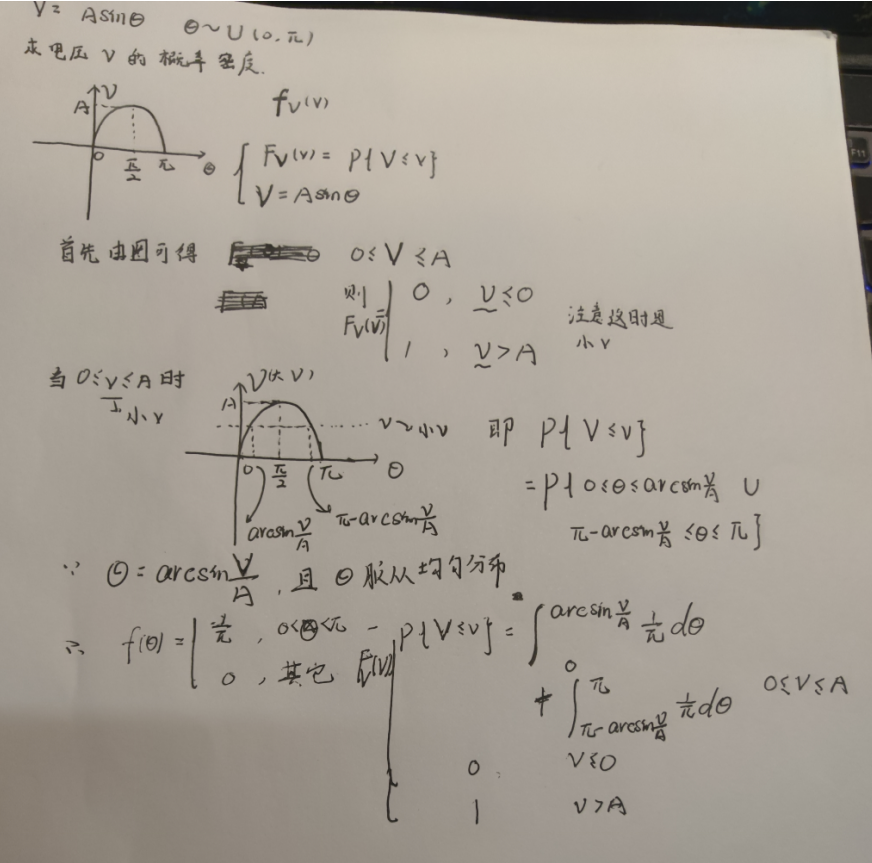 V = Asinθ  θ~U(0,π)
求电压V的概率密度.
f_V(v)
A V
0 π/2 π θ
F_V(v) = P{V≤v}
V = Asinθ
首先由图可得 0≤V≤A
则 F_V(v) = 0, v≤0
1, v>A
注意这时是
小v
当0≤v≤A时
小v
V(大V)
A
v~小v
0 π/2 π θ
arcsin V/A  π-arcsin V/A
即 P{V≤v}
=P{0≤θ≤arcsin v/A ∪
π-arcsin v/A ≤θ≤π}
∵ θ=arcsin V/A, 且θ服从均匀分布
∴ f(θ)= 1/π, 0<θ<π
0, 其它
F_V(v) P{V≤v} = ∫_0^{arcsin v/A} 1/π dθ
+ ∫_{π-arcsin v/A}^π 1/π dθ  0≤V≤A
0  V≤0
1  v>A